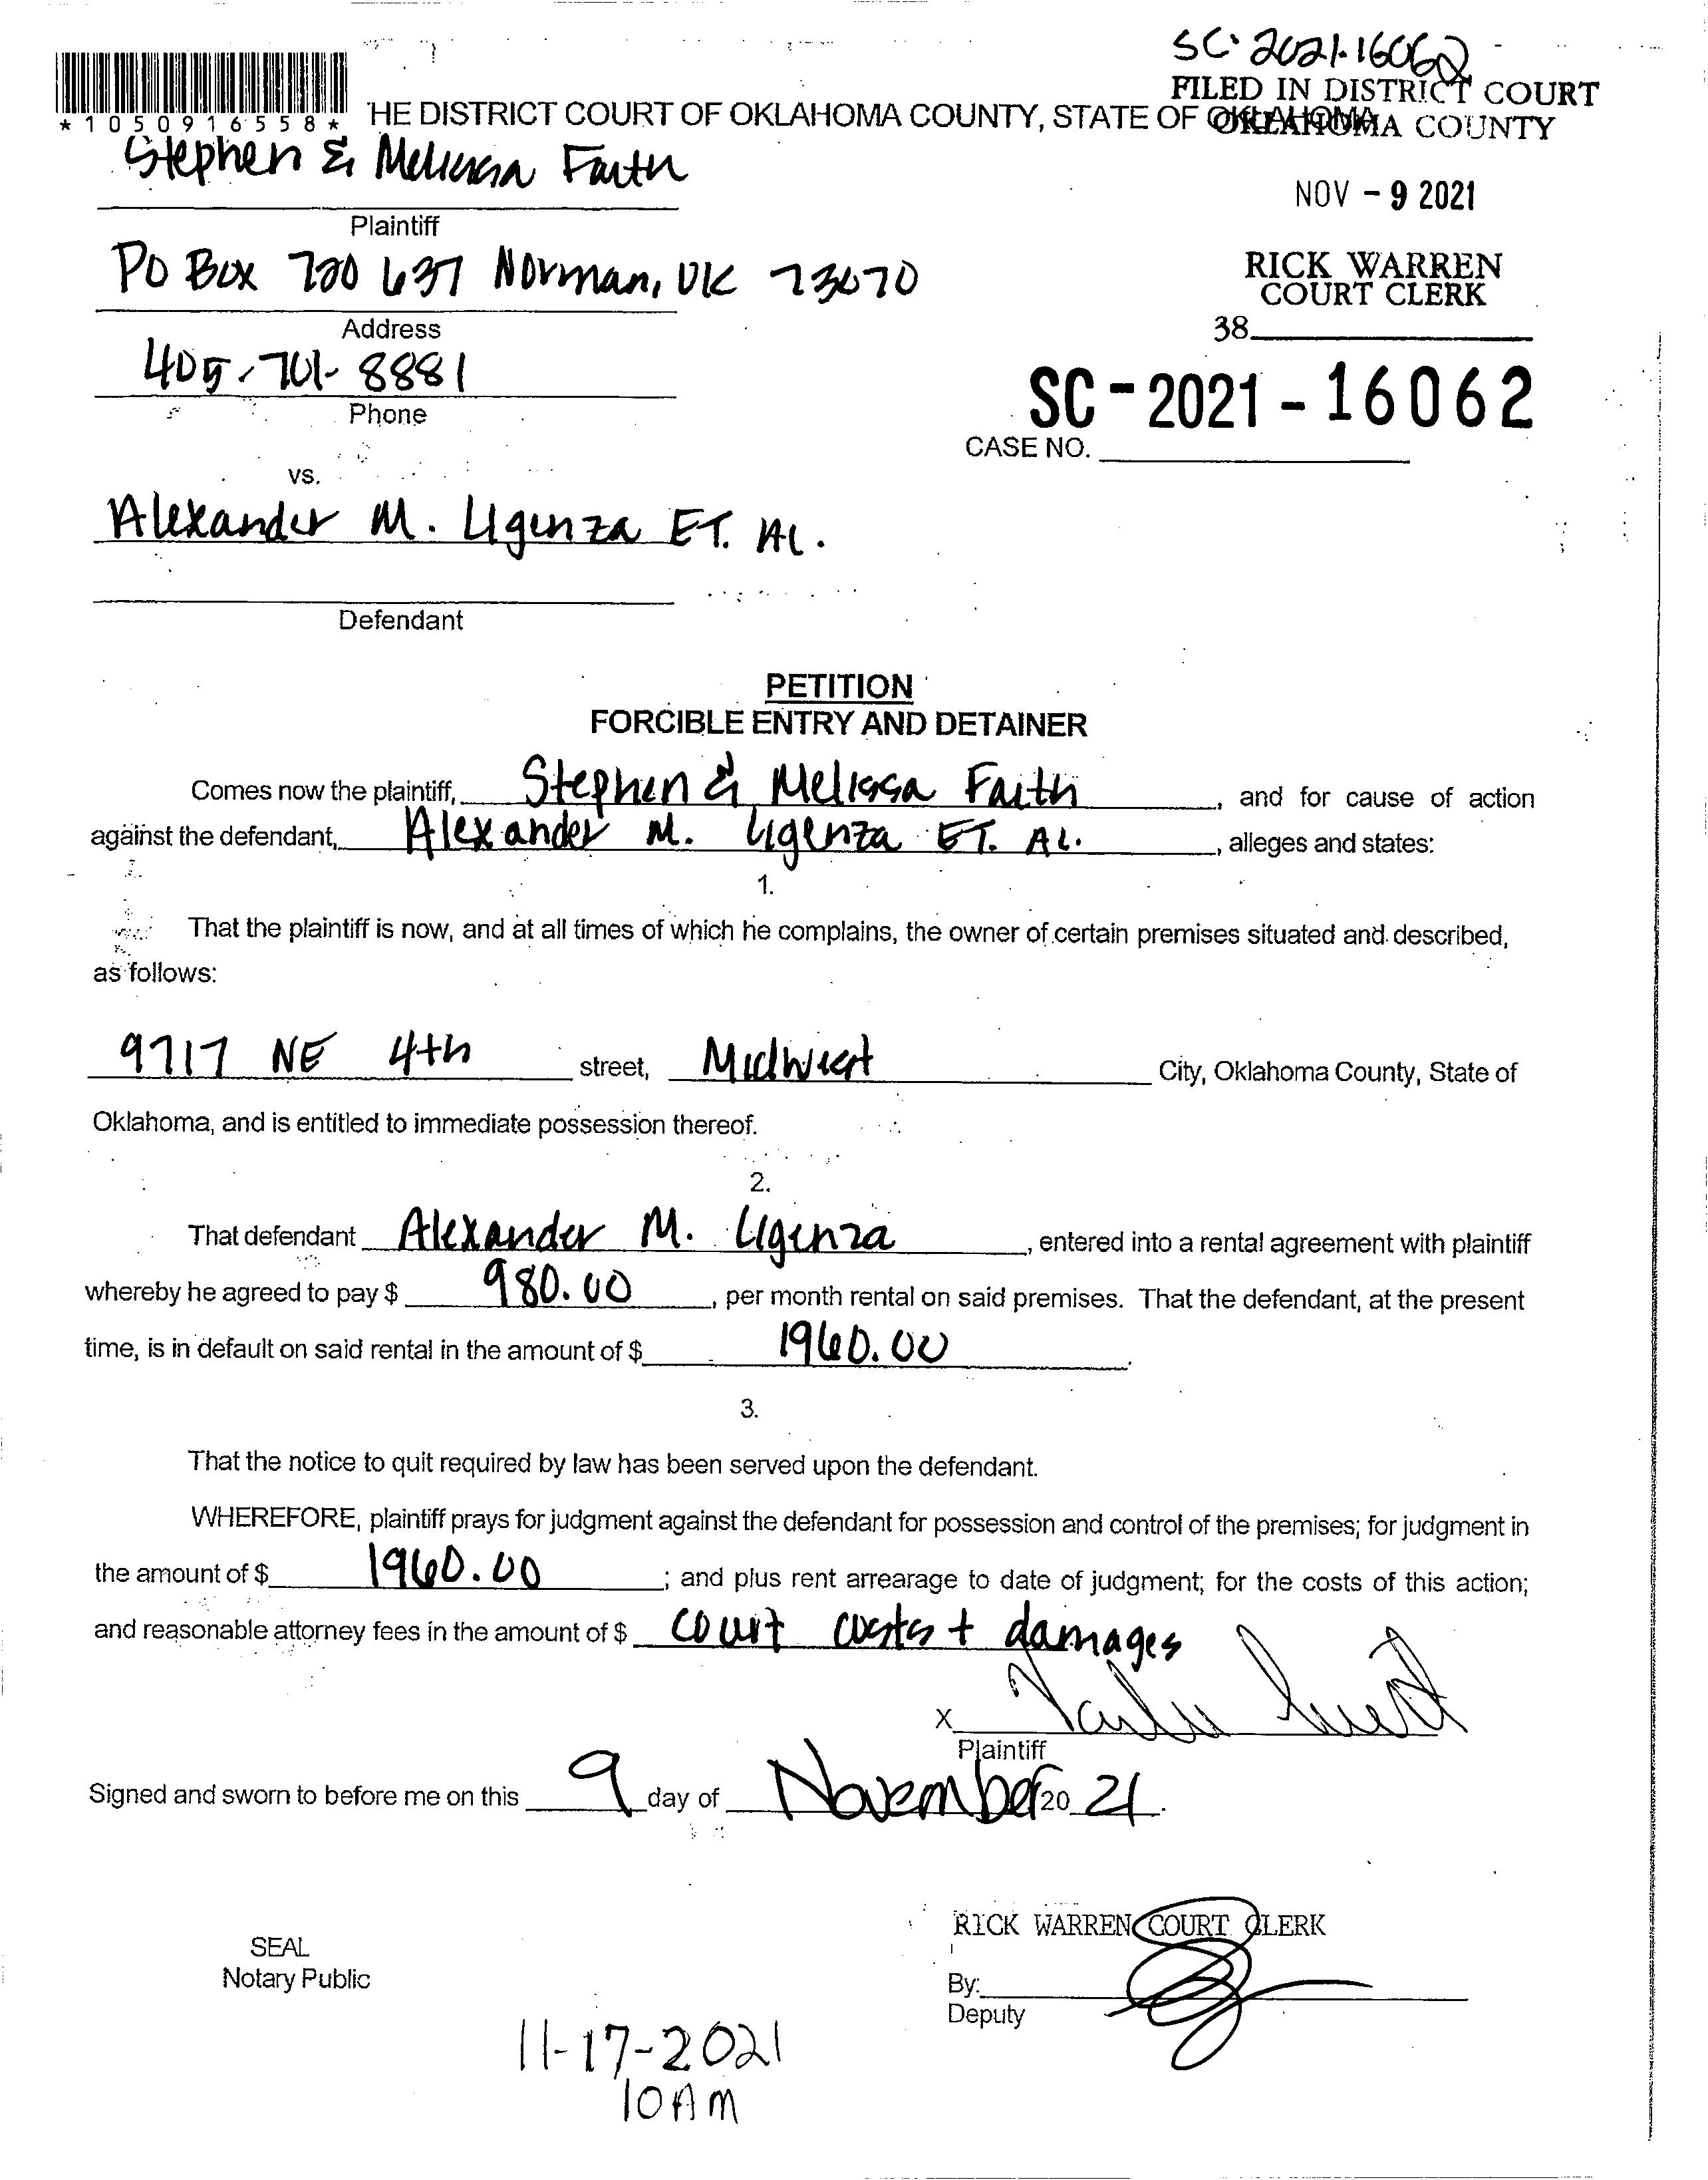 SC-2021-16062
FILED IN DISTRICT COURT
OKLAHOMA COUNTY
*1050916558*
HE DISTRICT COURT OF OKLAHOMA COUNTY, STATE OF OKLAHOMA
Stephen & Melissa Faith
NOV - 9 2021
Plaintiff
PO Box 720637 Norman, OK 73070
RICK WARREN
COURT CLERK
Address
38
405-701-8881
Phone
SC - 2021 - 16062
CASE NO.
vs.
Alexander M. Ligenza ET. AL.
Defendant
PETITION
FORCIBLE ENTRY AND DETAINER
Comes now the plaintiff, Stephen & Melissa Faith, and for cause of action
against the defendant, Alexander M. Ligenza ET. AL., alleges and states:
1.
That the plaintiff is now, and at all times of which he complains, the owner of certain premises situated and described,
as follows:
9717 NE 4th street, Midwest City, Oklahoma County, State of
Oklahoma, and is entitled to immediate possession thereof.
2.
That defendant Alexander M. Ligenza, entered into a rental agreement with plaintiff
whereby he agreed to pay $ 980.00, per month rental on said premises. That the defendant, at the present
time, is in default on said rental in the amount of $ 1960.00.
3.
That the notice to quit required by law has been served upon the defendant.
WHEREFORE, plaintiff prays for judgment against the defendant for possession and control of the premises; for judgment in
the amount of $ 1960.00; and plus rent arrearage to date of judgment; for the costs of this action;
and reasonable attorney fees in the amount of $ court costs + damages
X
Plaintiff
Signed and sworn to before me on this 9 day of November 20 21.
RICK WARREN COURT CLERK
SEAL
Notary Public
By:
Deputy
11-17-2021
10AM